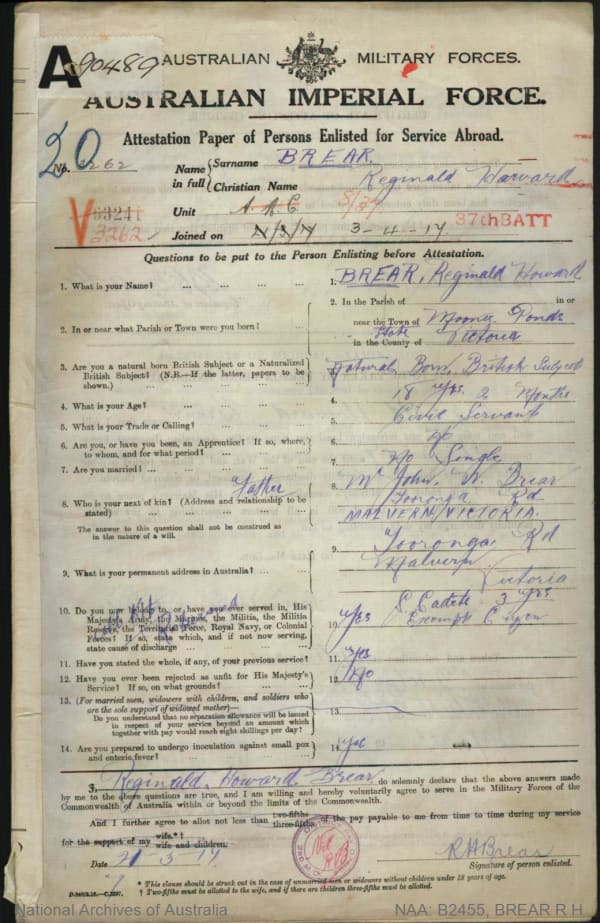 A 90489 AUSTRALIAN MILITARY FORCES.
AUSTRALIAN IMPERIAL FORCE.
Attestation Paper of Persons Enlisted for Service Abroad.
20
No. 3262
Name in full { Surname BREAR.
Christian Name Reginald Howard
V 63241
3262
Unit A.M.C 5/37
Joined on 3-4-17
37th BATT
Questions to be put to the Person Enlisting before Attestation.
1. What is your Name? ... ... ...
1. BREAR, Reginald Howard
2. In or near what Parish or Town were you born? ...
2. In the Parish of in or
near the Town of Moonee Ponds
in the County of State Victoria
3. Are you a natural born British Subject or a Naturalized
British Subject? (N.B.—If the latter, papers to be
shown.) ... ... ...
3. Natural Born British Subject
4. What is your Age? ... ... ...
4. 18 yrs. 2 Months
5. What is your Trade or Calling? ... ...
5. Civil Servant
6. Are you, or have you been, an Apprentice? If so, where,
to whom, and for what period? ... ...
6. No
7. Are you married? ... ... ...
7. No Single
8. Who is your next of kin? (Address and relationship to be
stated) ... ... ...
Father
8. Mr John W. Brear
Tooronga Rd
MALVERN, VICTORIA.
The answer to this question shall not be construed as
in the nature of a will.
9. What is your permanent address in Australia? ...
9. Tooronga Rd
Malvern
Victoria
10. Do you now belong to, or have you ever served in, His
Majesty's Army, the Marines, the Militia, the Militia
Reserve, the Territorial Force, Royal Navy, or Colonial
Forces? If so, state which, and if not now serving,
state cause of discharge ... ... ...
10. Yes S. Cadets 3 yrs
Exempt
11. Have you stated the whole, if any, of your previous service?
11. Yes
12. Have you ever been rejected as unfit for His Majesty's
Service? If so, on what grounds? ... ...
12. No
13. (For married men, widowers with children, and soldiers who
are the sole support of widowed mother)—
Do you understand that no separation allowance will be issued
in respect of your service beyond an amount which
together with pay would reach eight shillings per day?
13.
14. Are you prepared to undergo inoculation against small pox
and enteric fever? ... ... ...
14. Yes
I, Reginald Howard Brear do solemnly declare that the above answers made
by me to the above questions are true, and I am willing and hereby voluntarily agree to serve in the Military Forces of the
Commonwealth of Australia within or beyond the limits of the Commonwealth.
And I further agree to allot not less than two-fifths three-fifths of the pay payable to me from time to time during my service
for the support of my wife.*† wife and children.
Date 21-3-17
R H Brear
Signature of person enlisted.
* This clause should be struck out in the case of unmarried men or widowers without children under 18 years of age.
† Two-fifths must be allotted to the wife, and if there are children three-fifths must be allotted.
National Archives of Australia
NAA: B2455, BREAR R H